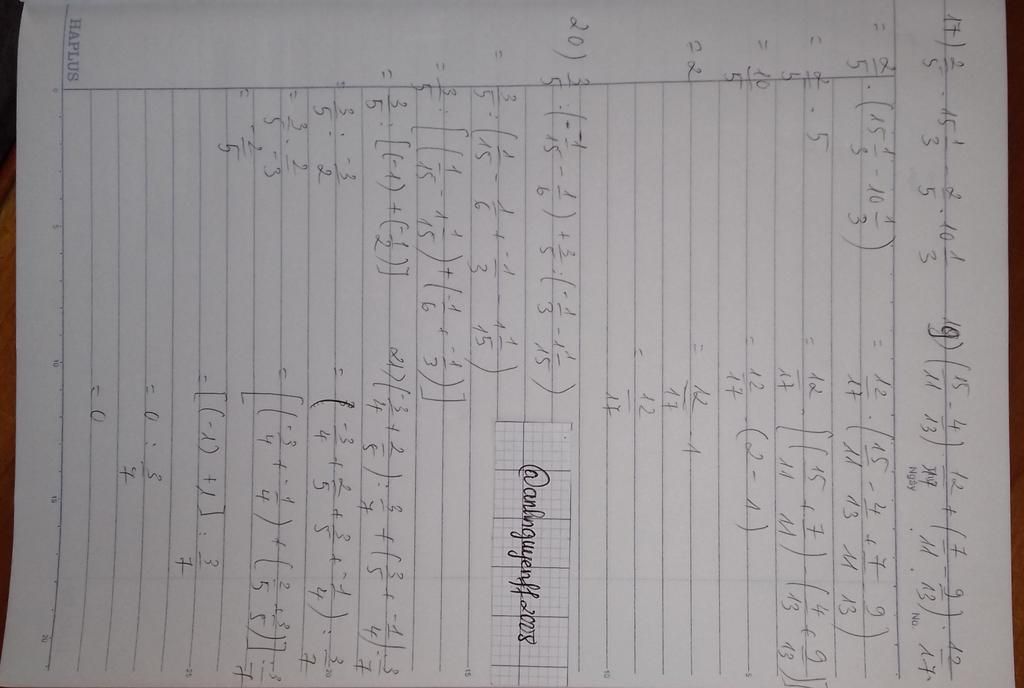 17) 2/5 . 15 1/3 - 2/5 . 10 1/3
= 2/5 . (15 1/3 - 10 1/3)
= 2/5 . 5
= 10/5
= 2
19) (15/11 - 4/13) . 12/17 + (7/11 - 9/13) . 12/17
Ngày
No.
= 12/17 . (15/11 - 4/13 + 7/11 - 9/13)
= 12/17 . [(15/11 + 7/11) - (4/13 + 9/13)]
= 12/17 . (2 - 1)
= 12/17 . 1
= 12/17
20) 3/5 : (-1/15 - 1/6) + 3/5 : (-1/3 - 1 1/15)
= 3/5 : (1/15 - 1/6 + -1/3 - 1 1/15)
= 3/5 : [(1/15 - 1 1/15) + (-1/6 + -1/3)]
= 3/5 : [(-1) + (-1/2)]
= 3/5 : -3/2
= 3/5 . 2/-3
= -2/5
@anhnguyenff.2008
21) (-3/4 + 2/5) : 3/7 + (3/5 + -1/4) : 3/7
= (-3/4 + 2/5 + 3/5 + -1/4) : 3/7
= [(-3/4 + -1/4) + (2/5 + 3/5)] : 3/7
= [(-1) + 1] : 3/7
= 0 : 3/7
= 0
HAPLUS
0
5
10
15
20
5
10
15
20
25